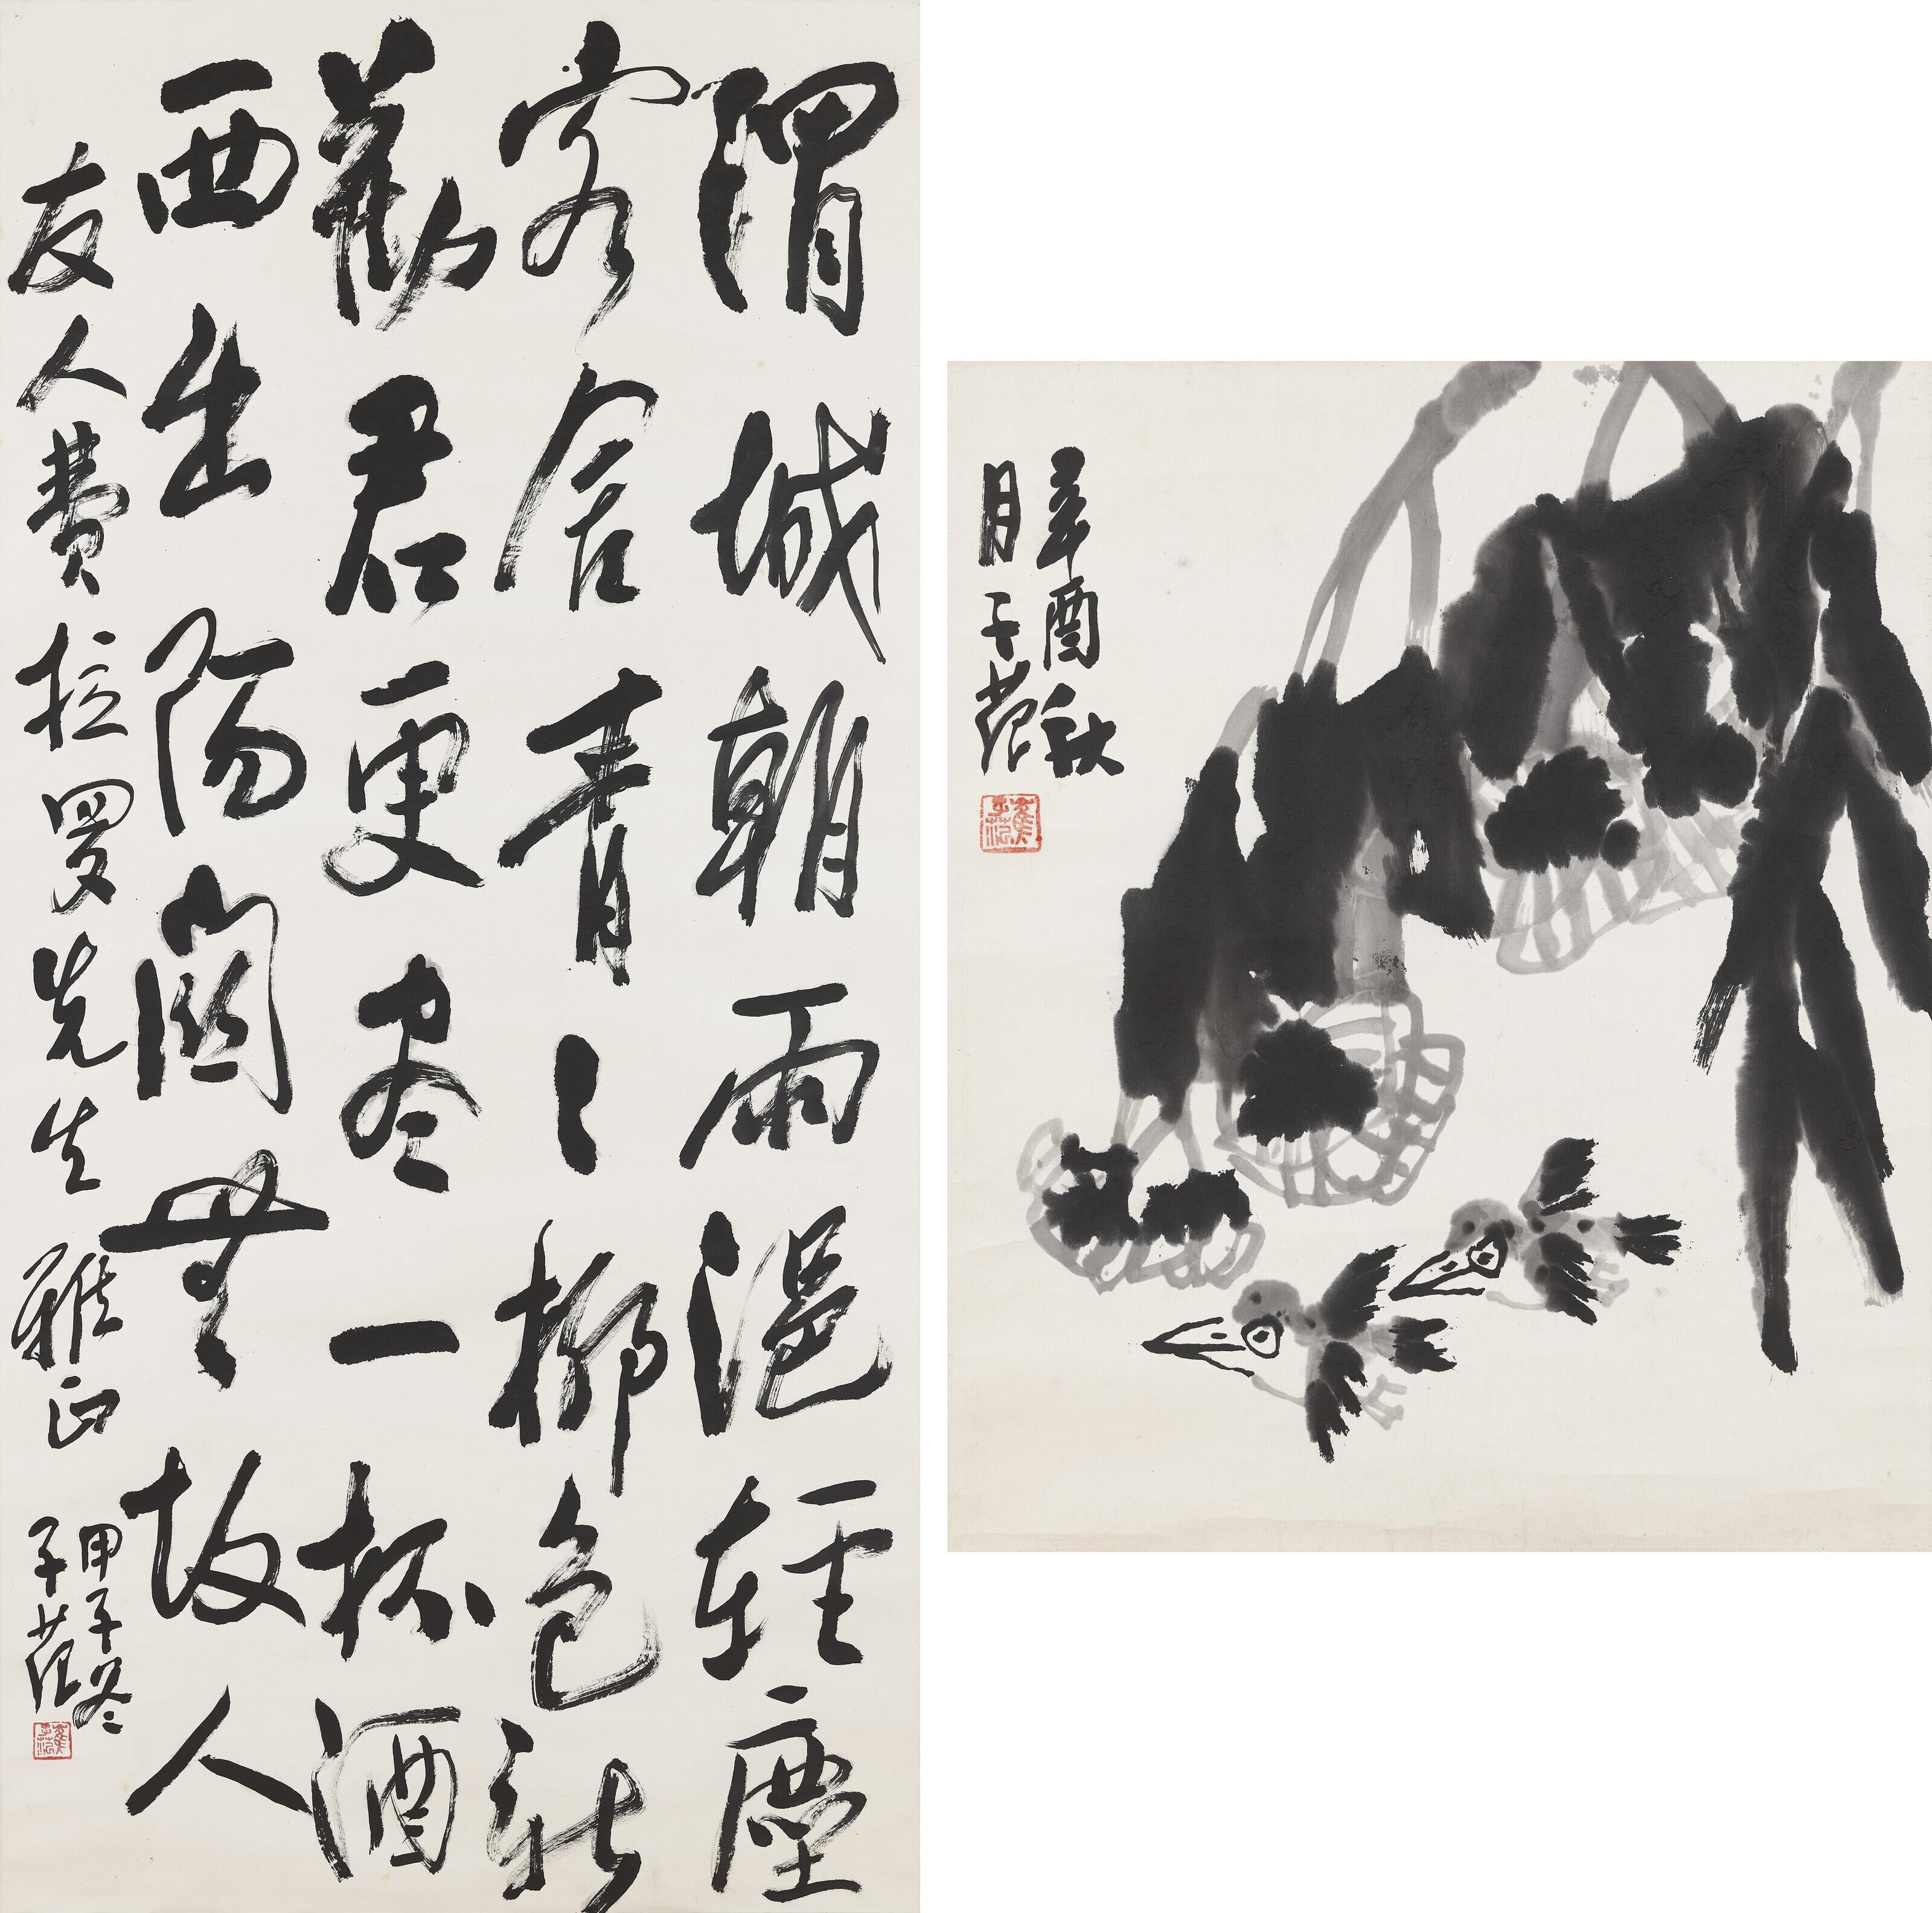 渭城朝雨浥輕塵
客舍青〻柳色新
勸君更尽一杯酒
西出陽關無故人
友人費拉罗先生雅正
甲子冬
子范
崔子范
辛酉秋
月子范
崔子范